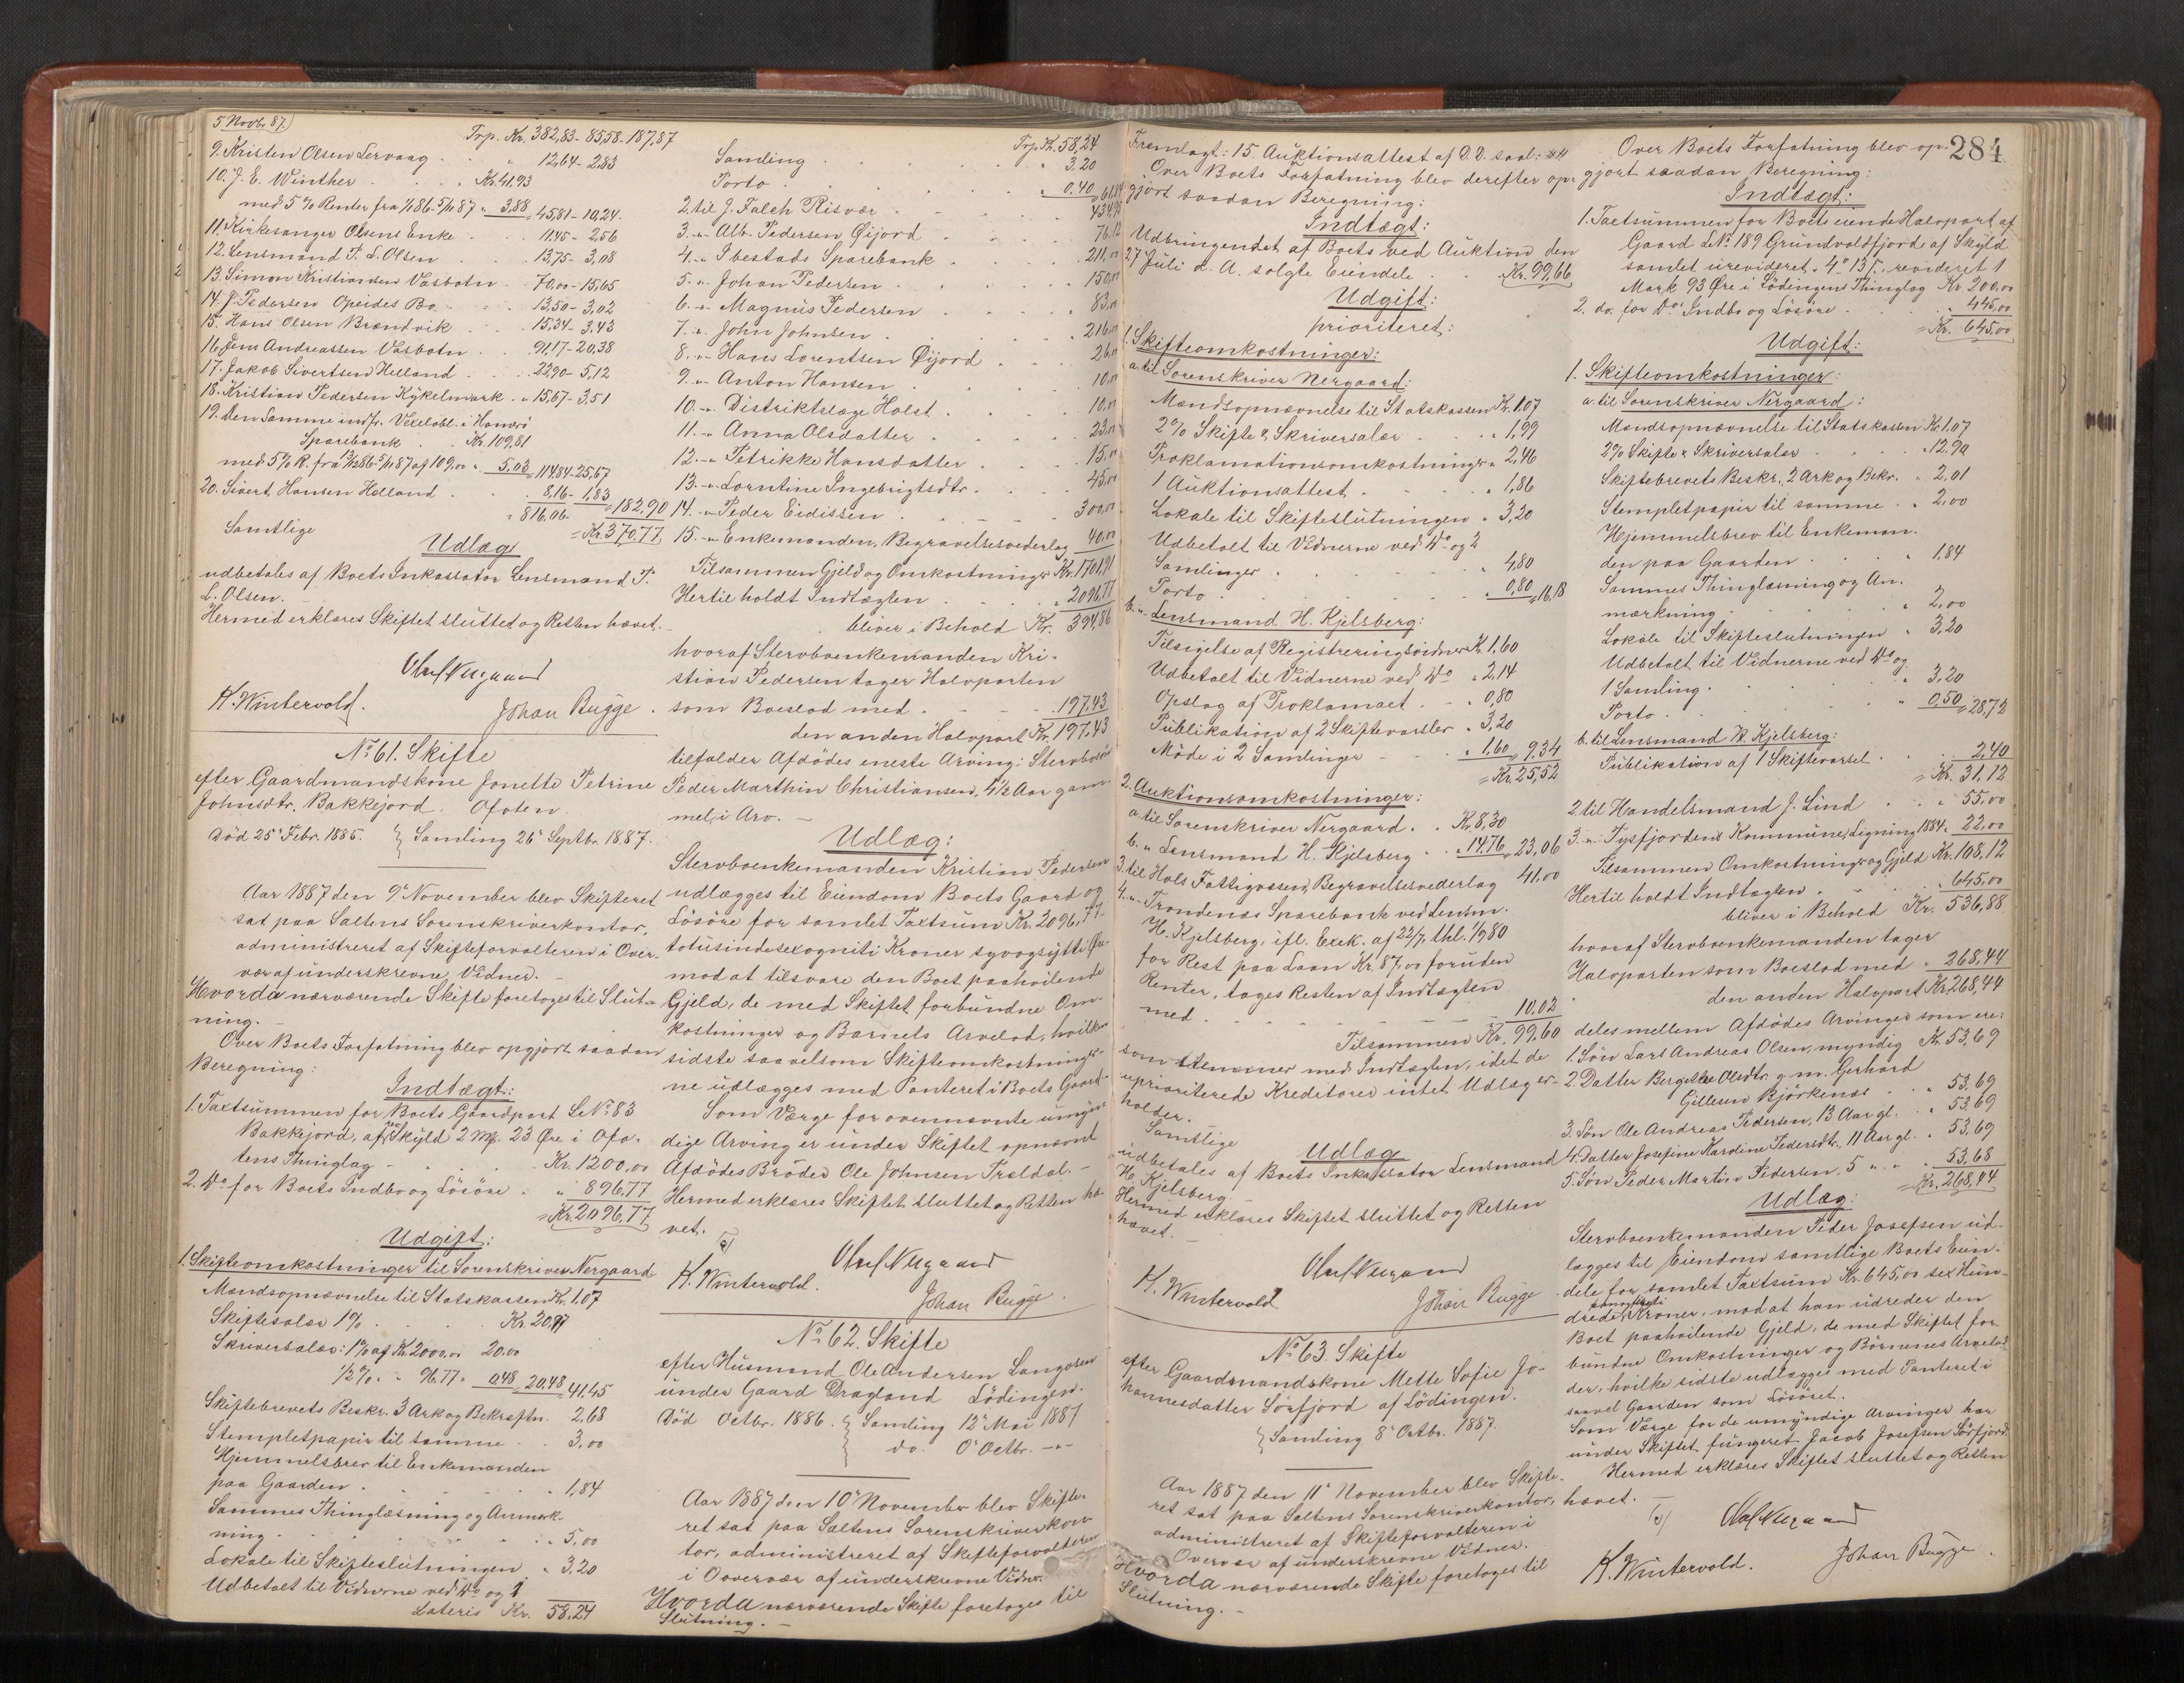 5 Novbr. 87.
Trp. Kr. 382,83 - 85,58 - 187,87
9. Kristen Olsen Lervaag . . " 12,64 - 2,83
10. J. E. Winther . . . Kr. 41,93
med 5 % Renter fra 1/1 86 - 5/11 87 " 3,88 = 45,81 - 10,24.
11. Kirkesanger Olsens Enke . . 11,45 - 2,56
12. Lensmand P. L. Olsen . . 13,75 - 3,08
13. Simon Kristiansen Vasbotn . 70,00 - 15,65
14. J. Pedersen Opeides Bo . . 13,50 - 3,02
15. Hans Olsen Brændvik . . 15,34 - 3,43
16. Jens Andreassen Vasbotn . . 91,17 - 20,38
17. Jakob Sivertsen Helland . . 22,90 - 5,12
18. Kristian Pedersen Kykelvark . " 15,67 - 3,51
19. Den Samme indfr. Vexelobl. i Hamarø
Sparebank . . Kr. 109,81
med 5 % R. fra 13/12 86 - 5/11 87 af 109,00 " 5,03 = 114,84 - 25,67
20. Sivert Hansen Helland . . 8,16 - 1,83
" 816,06 = 182,90
Samtlige = Kr. 370,77
Udlæg
udbetales af Boets Inkassator Lensmand P.
L. Olsen.
Hermed erklæres Skiftet sluttet og Retten hævet. -
Olaf Nergaard
K. Wintervold. Johan Bugge.
No 61. Skifte
efter Gaardmandskone Jonette Petrine
Johnsdtr. Bakkejord Ofoten
Død 25' Febr. 1885. } Samling 26' Septbr. 1887.
Aar 1887 den 9' November blev Skifteret
sat paa Saltens Sorenskriverkontor,
administreret af Skifteforvalteren i Over-
vær af underskrevne Vidner. -
Hvorda nærværende Skifte foretoges til Slut-
ning. -
Over Boets Forfatning blev opgjørt saadan
Beregning:
Indtægt:
1. Taxtsummen for Boets Gaardpart L No 83
Bakkejord, af rev. Skyld 2 Mk. 23 Øre i Ofo-
tens Thinglag - . . Kr. 1200,00
2. Do for Boets Indbo og Løsøre . " 896,77
= Kr. 2096,77
Udgift:
1. Skifteomkostninger til Sorenskriver Nergaard
Mandsopnævnelse til Statskassen Kr. 1,07
Skiftesalær 1 % . . . Kr. 20,97
Skriversalær: 1 % af Kr. 2000,00 20,00
1/2 % " " 96.77 " 0,48 = 20,48 = 41,45
Skiftebrevets Beskr. 3 Ark og Bekræftn. 2,68
Stempletpapir til samme . . 3,00
Hjemmelsbrev til Enkemanden
paa Gaarden . . . . " 1,84
Sammes Thinglæsning og Anmærk-
ning . . . . . " 5,00
Lokale til Skifteslutningen . " 3,20
Udbetalt til Vidnerne ved Do og 1
Lateris Kr. 58,24
Trp. Kr. 58,24
Samling . . . . " 3,20
Porto . . . . . " 0,40
2. til J. Falch Risvær . . .
3. -"- Alb. Pedersen Øijord . . .
4. -"- Ibestads Sparebank . . . 211,00
5. -"- Johan Pedersen . . . 150,00
6. -"- Magnus Pedersen . . . 83,00
7. -"- John Johnsen . . . 216,00
8. -"- Hans Lorentsen Øijord . . 26,00
9. -"- Anton Hansen . . . 10,00
10. -"- Distriktslæge Holst . . . 10,00
11. -"- Anna Olsdatter . . . 23,00
12. -"- Petrikke Hansdatter . . . 15,00
13. -"- Lorntine Ingebrigtsdtr. . . 45,00
14. -"- Peder Eidissen . . . 300,00
15. -"- Enkemanden, Begravelsesvederlag 40,00
Tilsammen Gjeld og Omkostninger Kr. 1701,91
Hertil holdt Indtægten . . . " 2096,77
bliver i Behold Kr. 394,86
hvoraf Stervboenkemanden Kri-
stian Pedersen tager Halvparten
som Boeslod med . . . 197,43
den anden Halvpart Kr. 197,43
tilfalder Afdødes eneste Arving: Stervbosøn
Peder Marthin Christiansen, 4 1/2 Aar gam-
mel, i Arv. -
Udlæg:
Stervboenkemanden Kristian Pedersen
udlægges til Eiendom Boets Gaard og
Løsøre for samlet Taxtsum Kr. 2096,77 -
totusindesexogniti Kroner syvogsytti Øre
mod at tilsvare den Boet paahvilende
Gjeld, de med Skiftet forbundne Om-
kostninger og Barnets Arvelod, hvilke
sidste saavelsom Skifteomkostninger-
ne udlægges med Panteret i Boets Gaard.
Som Værge for ovennævnte umyn-
dige Arving er under Skiftet opnævnt
Afdødes Broder Ole Johnsen Trældal. -
Hermed erklæres Skiftet sluttet og Retten hæ-
vet.
Olaf Nergaard
K. Wintervold. Johan Bugge.
No 62. Skifte
efter Husmand Ole Andersen Langaasen
under Gaard Dragland Lødingen.
Død Octbr. 1886. } Samling 12' Mai 1887
do. 0' Octbr. -"-
Aar 1887 den 10' November blev Skifte-
ret sat paa Saltens Sorenskriverkon-
tor, administreret af Skifteforvalteren
i Overvær af underskrevne Vidner.
Hvorda nærværende Skifte foretoges til
Slutning. -
Fremlagt: 15. Auktionsattest af D. D. saal:
Over Boets Forfatning blev derefter op-
gjørt saadan Beregning:
Indtægt:
Udbringendet af Boets ved Auktion den
27' Juli d. A. solgte Eiendele . . Kr. 99,66
Udgift:
prioriteret:
1. Skifteomkostninger:
a. til Sorenskriver Nergaard:
Mandsopnævnelse til Statskassen Kr. 1,07
2 % Skifte & Skriversalær . . " 1,99
Proklamationsomkostninger " 2,46
1 Auktionsattest . . . " 1,86
Lokale til Skifteslutningen " 3,20
Udbetalt til Vidnerne ved Do og 2
Samlinger . . . . " 4,80
Porto . . . . . " 0,80 = 16,18
b. -"- Lensmand H. Kjelsberg:
Tilsigelse af Registreringsvidner Kr. 1,60
Udbetalt til Vidnerne ved Do " 2,14
Opslag af Proklamaet . . " 0,80
Publikation af 2 Skiftevarsler " 3,20
Møde i 2 Samlinger - . " 1,60 = 9,34
= Kr. 25,52
2. Auktionsomkostninger:
a. til Sorenskriver Nergaard . . Kr. 8,30
b. " Lensmand H. Kjelsberg . " 14,76 = 23,06
3. til Hols Fattigvæsen, Begravelsesvederlag 41,00
4. -"- Trondenæs Sparebank ved Lensm.
H. Kjelsberg, ifl. Exek. af 22/7, thl. 1/9 80
for Rest paa Laan Kr. 87,00 foruden
Renter, tages Resten af Indtægten
med . . . . . . 10,02
Tilsammen Kr. 99,60
som stemmer med Indtægten, idet de
uprioriterede Kreditorer intet Udlæg er-
holder.
Udlæg
Samtlige
udbetales af Boets Inkassator Lensmand
H. Kjelsberg
Hermed erklæres Skiftet sluttet og Retten
hævet. -
Olaf Nergaard
K. Wintervold Johan Bugge
No 63. Skifte
efter Gaardmandskone Mette Sofie Jo-
hannesdatter Sørfjord af Lødingen.
} Samling 8' Octbr. 1887.
Aar 1887 den 11' November blev Skifte-
ret sat paa Saltens Sorenskriverkontor,
administreret af Skifteforvalteren i
Overvær af underskrevne Vidner.
Hvorda nærværende Skifte foretoges til
Slutning. -
284
Over Boets Forfatning blev op-
gjørt saadan Beregning:
Indtægt:
1. Taxtsummen for Boets eiende Halvpart af
Gaard L No 189 Grundvoldfjord af Skyld
samlet urevideret, revideret 1
Mark 93 Øre i Lødingens Thinglag Kr. 200,00
2. do. for Do Indbo og Løsøre . . " 445,00
= Kr. 645,00
Udgift:
1. Skifteomkostninger:
a. til Sorenskriver Nergaard:
Mandsopnævnelse til Statskassen Kr. 1,07
2 % Skifte & Skriversalær . . " 12,90
Skiftebrevets Beskr. 2 Ark og Bekr. " 2,01
Stempletpapir til samme . " 2,00
Hjemmelsbrev til Enkeman-
den paa Gaarden . . " 1,84
Sammes Thinglæsning og An-
mærkning . . . " 2,00
Lokale til Skifteslutningen " 3,20
Udbetalt til Vidnerne ved Do og
1 Samling . . . " 3,20
Porto . . . . " 0,50 = 28,72
b. til Lensmand H. Kjelsberg:
Publikation af 1 Skiftevarsel . . 2,40
= Kr. 31,12
2. til Handelsmand J. Lind . . " 55,00
3. -"- Tysfjordens Kommune, Ligning 1884 " 22,00
Tilsammen Omkostninger og Gjeld Kr. 108,12
Hertil holdt Indtægten . . " 645,00
bliver i Behold Kr. 536,88
hvoraf Stervboenkemanden tager
Halvparten som Boeslod med " 268,44
den anden Halvpart Kr. 268,44
deles mellem Afdødes Arvinger som ere:
1. Søn Lars Andreas Olsen, myndig Kr. 53,69
2. Datter Bergitte Olsdtr. g. m. Gerhard
Gillesen Bjørkenæs . . " 53,69
3. Søn Ole Andreas Pedersen, 13 Aar gl. . " 53,69
4. Datter Josefine Karoline Pedersdtr. 11 Aar gl. " 53,69
5. Søn Peder Martin Pedersen, 5 " " " 53,68
= Kr. 268,44
Udlæg:
Stervboenkemanden Peder Josefsen ud-
lægges til Eiendom samtlige Boets Eien-
dele for samlet Taxtsum Kr. 645,00 sex Hun-
drede femogførti Kroner, mod at han udreder den
Boet paahvilende Gjeld, de med Skiftet for-
bundne Omkostninger og Børnenes Arvelod-
der, hvilke sidste udlægges med Panteret i
saavel Gaarden som Løsøret.
Som Værge for de umyndige Arvinger har
under Skiftet fungeret Jacob Josefsen Sørfjord.
Hermed erklæres Skiftet sluttet og Retten
hævet. -
Olaf Nergaard
K. Wintervold. Johan Bugge.